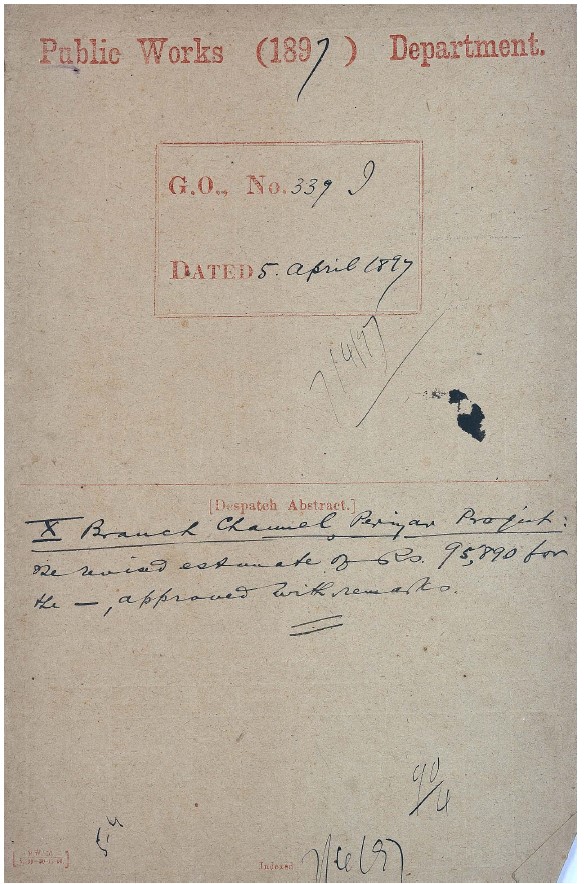 Public Works (1897) Department.
G.O., No. 339 I
DATED 5. April 1897
7/4/97
[Despatch Abstract.]
X Branch Channel, Periyar Project:
revised estimate of Rs. 95,890 for
the —, approved with remarks.
90/4
Indexed